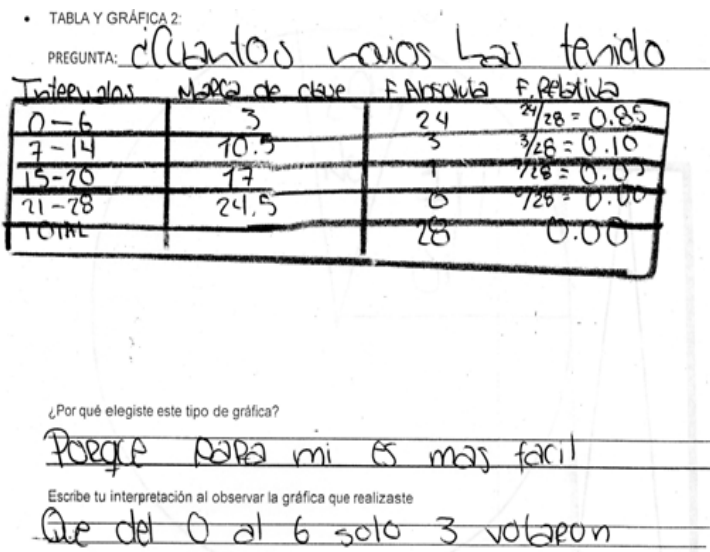 • TABLA Y GRÁFICA 2:
PREGUNTA: ¿Cuantos novios has tenido
Intervalos Marca de clase F Absoluta F. Relativa
0-6 3 24 24/28 = 0.85
7-14 10.5 3 3/28 = 0.10
15-20 17 1 1/28 = 0.03
21-28 24,5 0 0/28 = 0.00
TOTAL 28 0.00
¿Por qué elegiste este tipo de gráfica?
Porque para mi es mas facil
Escribe tu interpretación al observar la gráfica que realizaste
Que del 0 al 6 solo 3 votaron